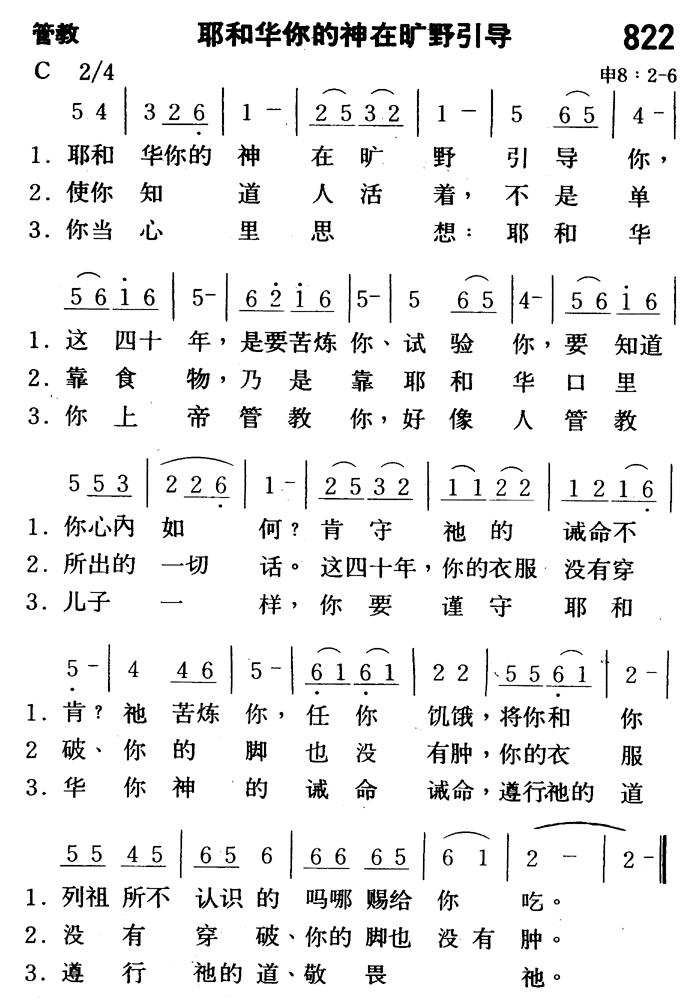 管教 耶和华你的神在旷野引导 822
C 2/4 申8：2-6
5 4 | 3 2 6 | 1 - | 2 5 3 2 | 1 - | 5 6 5 | 4 - |
1. 耶和 华你的 神 在 旷 野 引 导 你，
2. 使你 知 道 人 活 着，不 是 单
3. 你当 心 里 思 想：耶 和 华
5 6 1 6 | 5- | 6 2 1 6 | 5- | 5 6 5 | 4- | 5 6 1 6 |
1. 这 四十 年，是要苦炼 你、试 验 你，要 知道
2. 靠 食 物，乃 是 靠 耶 和 华 口 里
3. 你 上 帝 管 教 你，好 像 人 管 教
5 5 3 | 2 2 6 | 1- | 2 5 3 2 | 1 1 2 2 | 1 2 1 6 |
1. 你心内 如 何？肯 守 祂 的 诫命不
2. 所出的 一切 话。这四十年，你的衣服 没有穿
3. 儿子 一 样，你 要 谨 守 耶 和
5 - | 4 4 6 | 5 - | 6 1 6 1 | 2 2 | 5 5 6 1 | 2 - |
1. 肯？祂 苦炼 你，任 你 饥饿，将你和 你
2 破、你 的 脚 也 没 有肿，你的衣 服
3. 华 你 神 的 诫 命 诫命，遵行祂的 道
5 5 4 5 | 6 5 6 | 6 6 6 5 | 6 1 | 2 - | 2 - ‖
1. 列祖 所不 认识 的 吗哪 赐给 你 吃。
2. 没 有 穿 破、你的 脚也 没 有 肿。
3. 遵 行 祂的 道、敬 畏 祂。